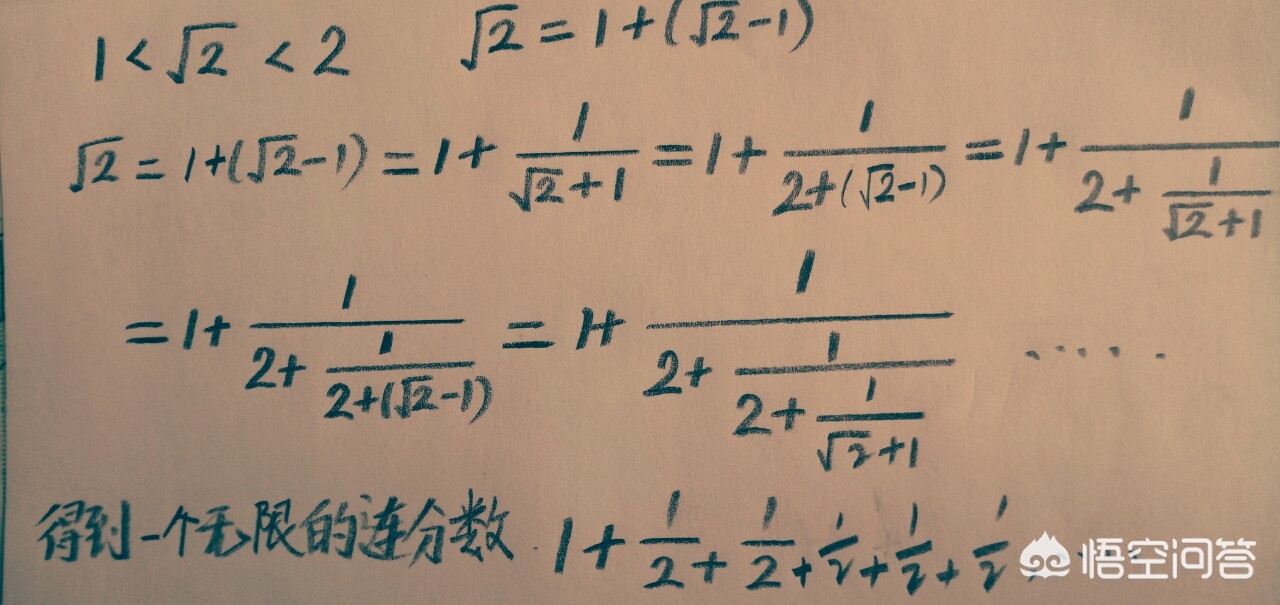 1 < √2 < 2 √2 = 1 + (√2 - 1)
√2 = 1 + (√2 - 1) = 1 + 1/(√2 + 1) = 1 + 1/(2 + (√2 - 1)) = 1 + 1/(2 + 1/(√2 + 1))
= 1 + 1/(2 + 1/(2 + (√2 - 1))) = 1 + 1/(2 + 1/(2 + 1/(√2 + 1))) ······
得到一个无限的连分数 1 + 1/2 + 1/2 + 1/2 + 1/2 + 1/2
悟空问答